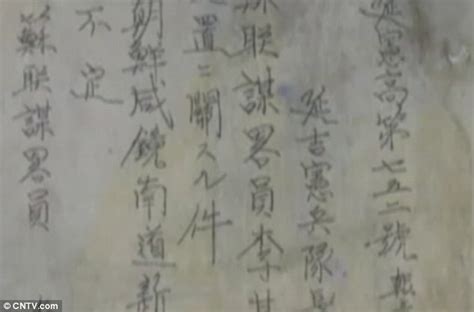 延憲高第七五二號
延吉憲兵隊長
聯謀畧員李
置ニ關スル件
朝鮮咸鏡南道新
不定
蘇联謀畧員
© CNTV.com